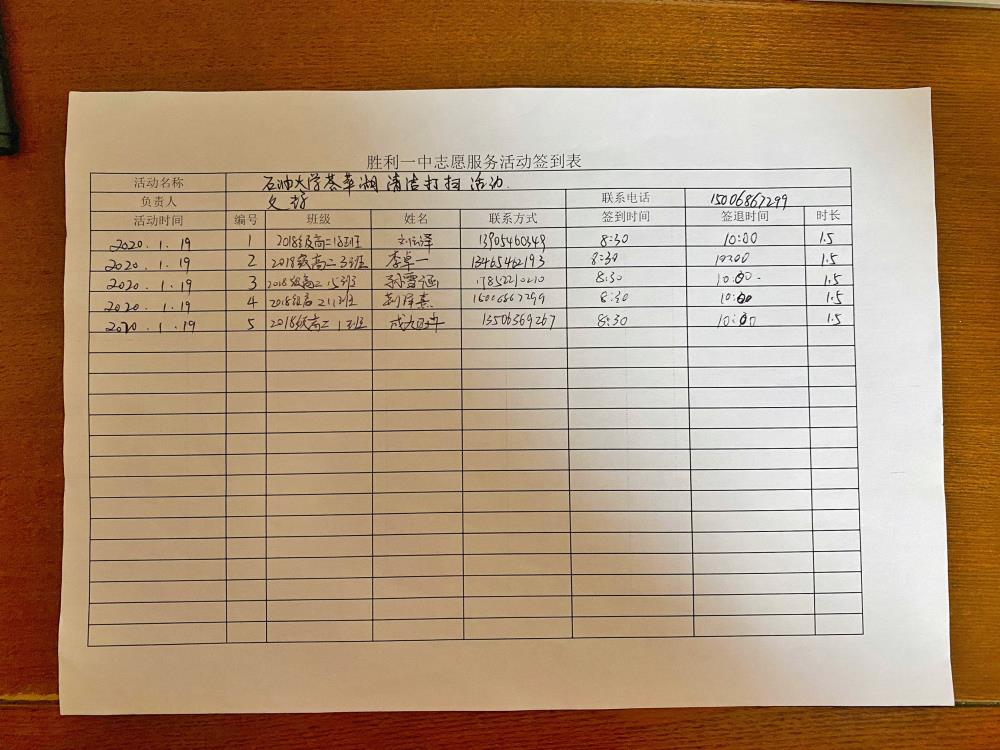 胜利一中志愿服务活动签到表
活动名称 石油大学荟萃湖清洁打扫活动
负责人 联系电话 15006867299
活动时间 编号 班级 姓名 联系方式 签到时间 签退时间 时长
2020.1.19 1 2018级高二18班 13905460349 8:30 10:00 1.5
2020.1.19 2 2018级高二3班 李卓一 13465462193 8:30 10:00 1.5
2020.1.19 3 2018级高二15班 孙雪涵 17852210210 8:30 10:00 1.5
2020.1.19 4 2018级高二11班 15006867299 8:30 10:00 1.5
2020.1.19 5 2018级高二1班 13506369267 8:30 10:00 1.5